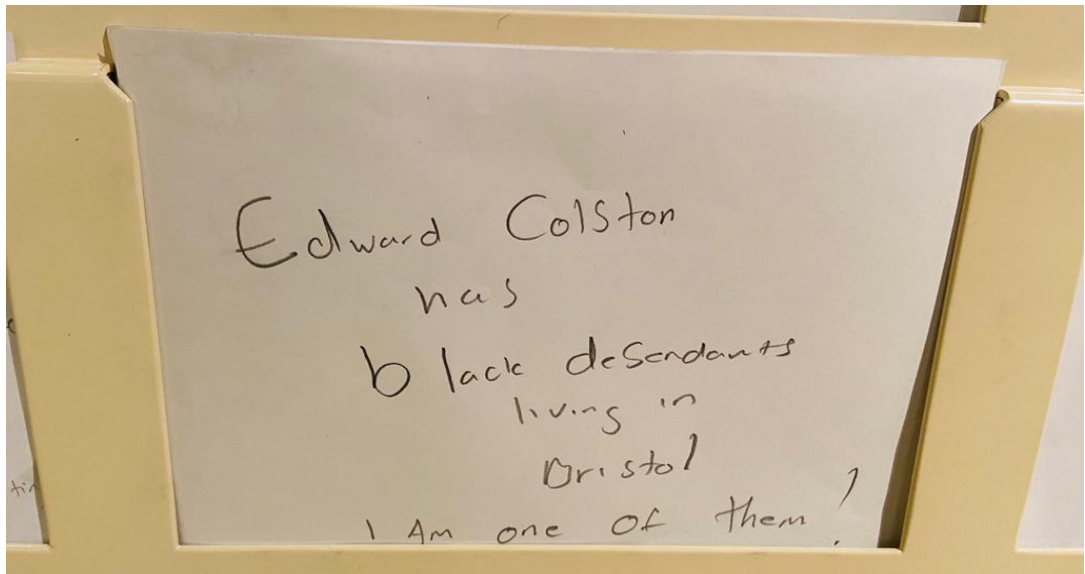 Edward Colston
has
black desendants
living in
Bristol
I Am one of them!
tin